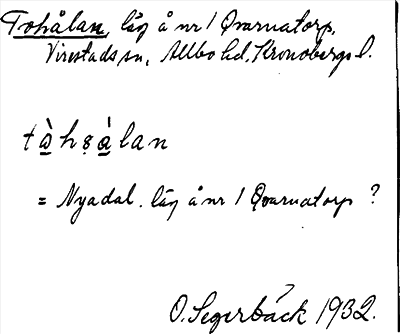 Tohålan, läg å nr 1 Qvarnatorp,
Virestads sn, Allbo hd, Kronobergs l.
tàhsàlan
= Nyadal. läg å nr 1 Qvarnatorp ?
O. Segerbäck 1932.